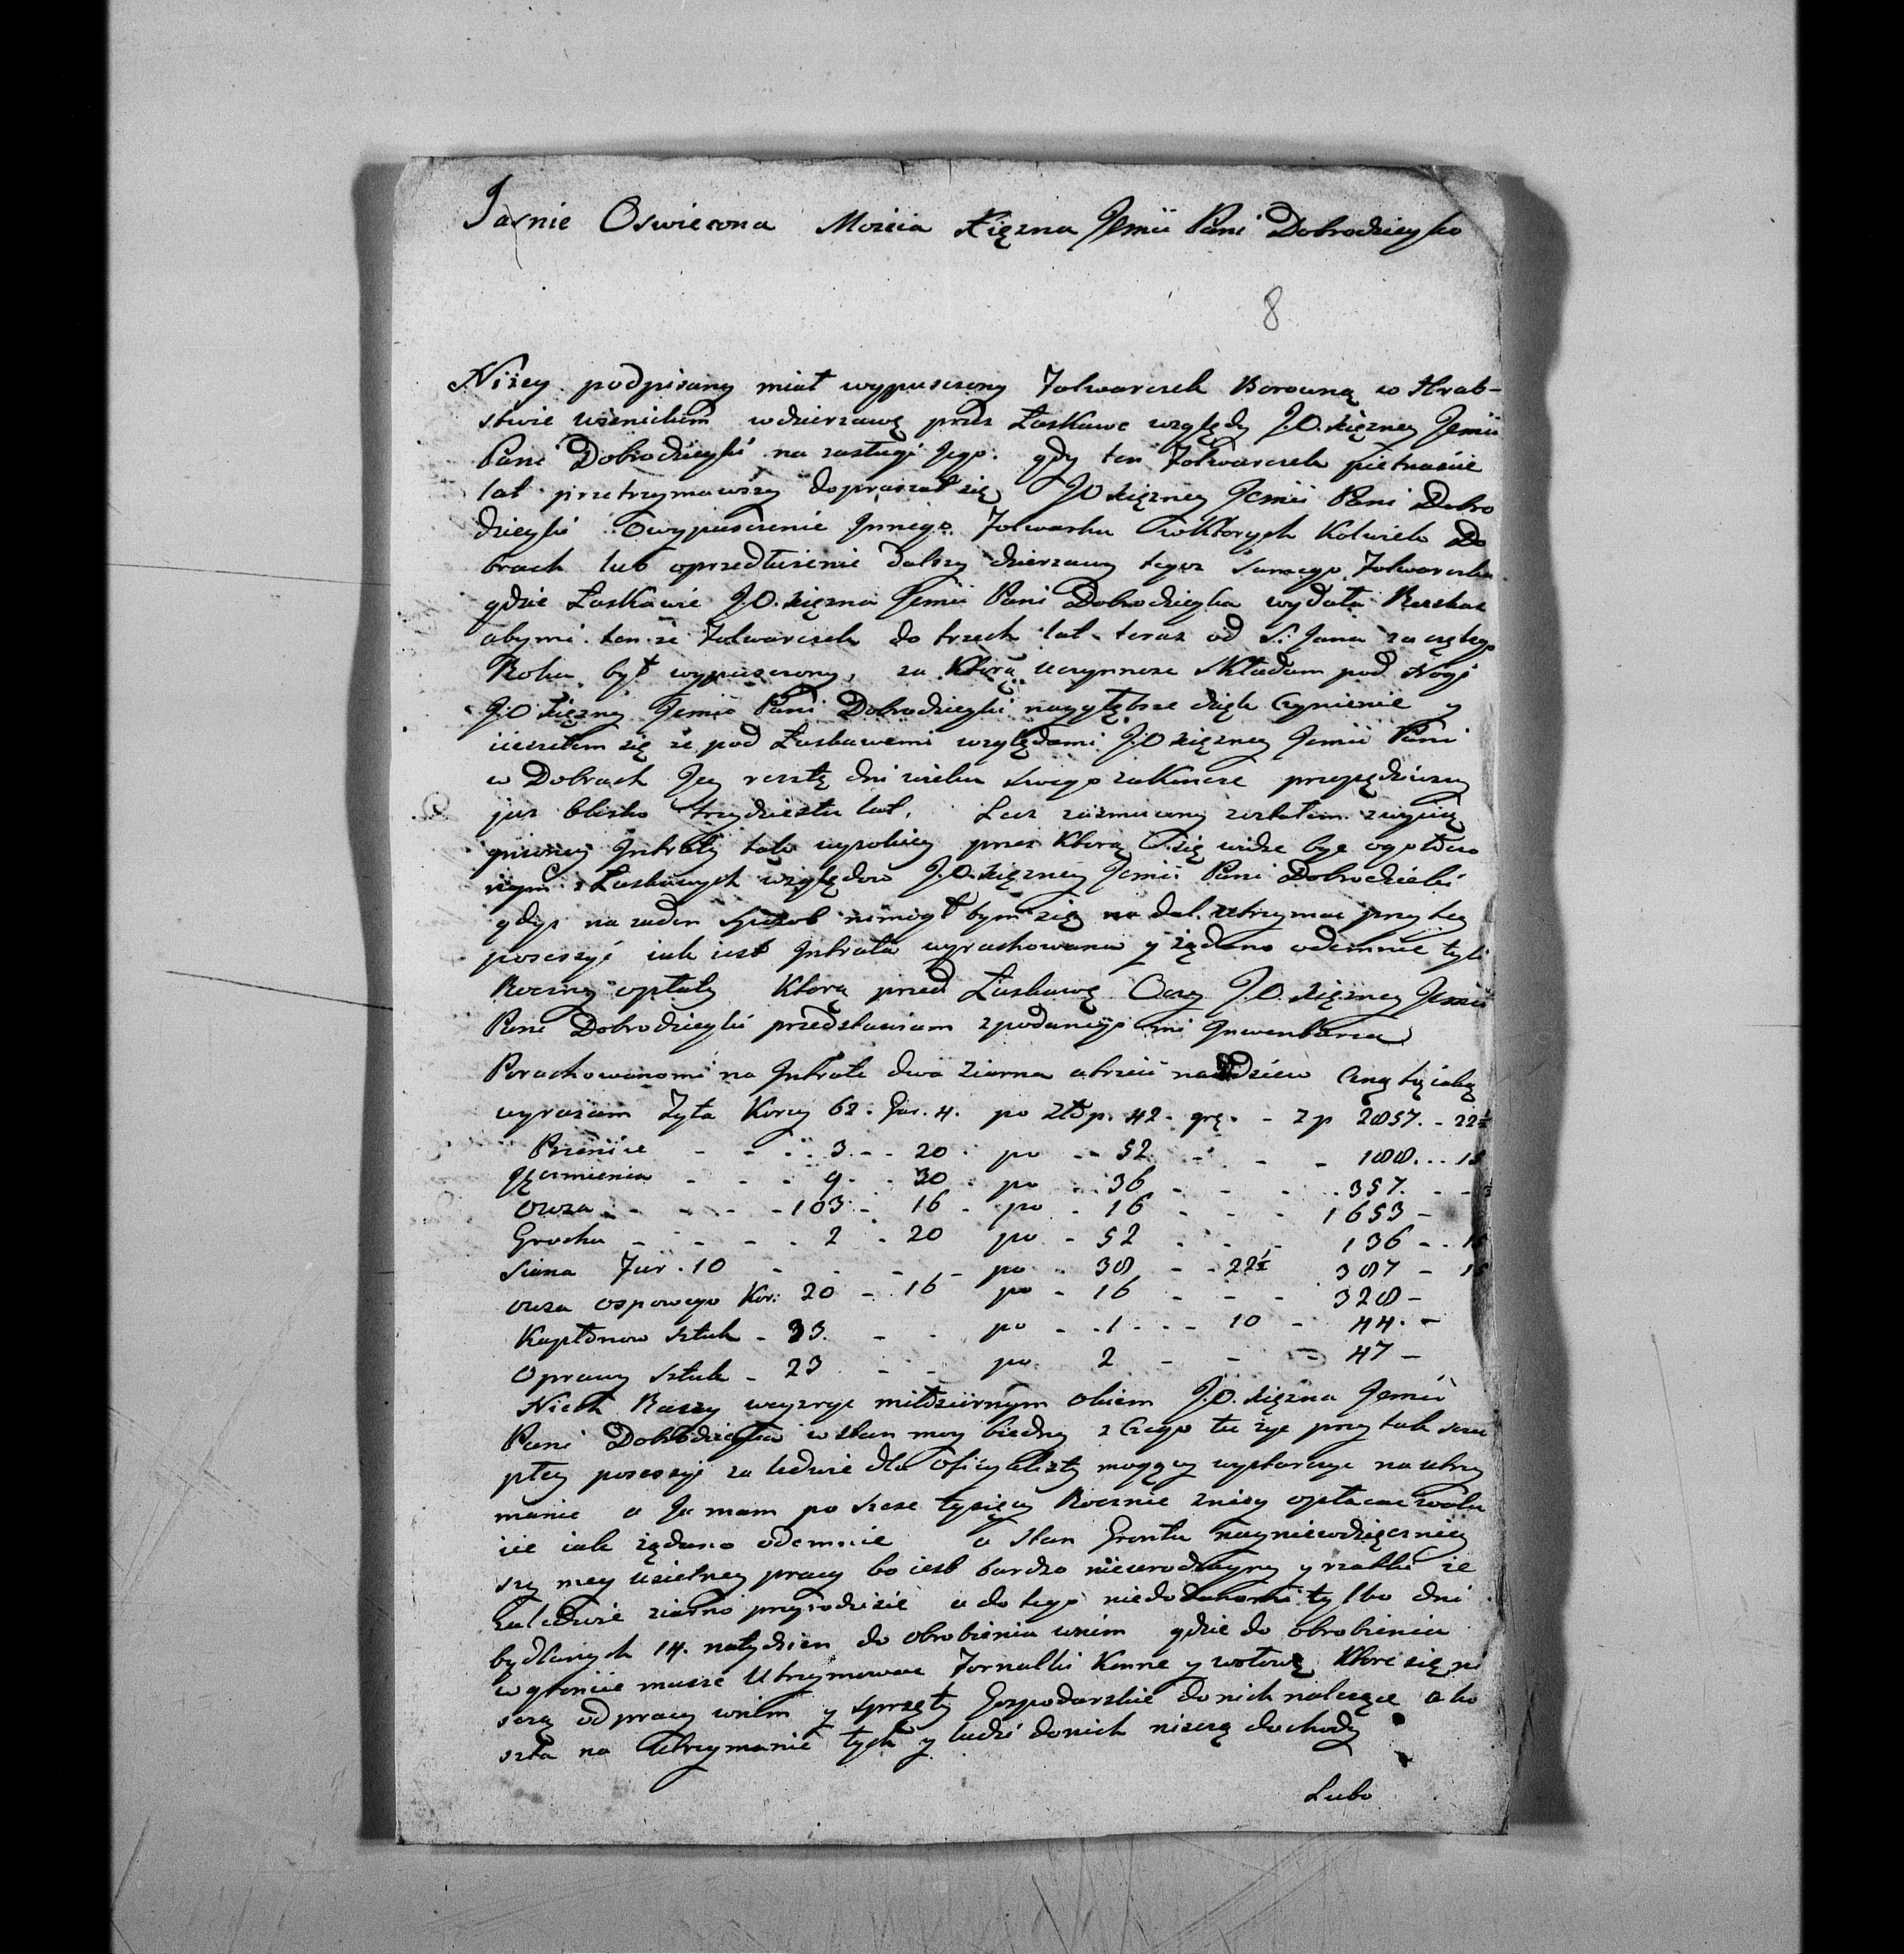 Jasnie Oswiecona Mościa Xiężna Jemii Pani Dobrodzieyko
8
Niżey podpisany miał wypusczony Folwarczek Borowną w Hrab-
stwie wisnickim wdzierzawę przez Łaskawe względy J.O. xiężney Jemii
Pani Dobrodzieyki na zasługi Jego. gdy ten Folwarczek pietnascie
lat przetrzymawszy dopraszał się JO xiężney Jemii Pani Dobro
dzieyki Owypusczenie Jnnego Folwarku wktorych Kolwiek Do
brach lub oprzedłużenie dalszy dzierzawy tegoz Samego Folwarczku
gdzie Łaskawie J.O. xiężna Jemii Pani Dobrodzieyka wydała Rozkaz
abymi ten że Folwarczek do trzech lat teraz od S: Jana zaczętego
Roku był wypusczony, za Ktorą uczynnosc Składam pod Nogi
J:O xiężny Jemii Pani Dobrodzieyki naygłębsze dzięk Czynienie y
iieszełem się ze pod Łaskawemi względami J:O xiężney Jemii Pani
w Dobrach Jey resztę dni wieku Swego zakoncze przepędziwszy
juz blisko trzydziestu lat. Lecz zasmucony zostałem zwycią
gnioney Jntraty tak wysokiey przez Ktorą się widze byc ogołoco
nym z Łaskawych względow J.O. xiężney Jemii Pani Dobrodzieki
gdyż na zaden Sposob nimogł bym się na dal utrzymac przy tey
posessyi iak iest Jntrata wyrachowana y żądano odemnie tyli
Roczny opłaty Ktorą przed Łaskawę Oczy J.O. xiężney Jemii
Pani Dobrodzieyki przedstawiam zpodanego mi Jnwentarza
Porachowanomi na Jntrate dwa Ziarna a trzcii nadziew Ceną tą iaką
wyrazam Żyta Korcy 62. Gar. 4. po Złłp. 42. grę. - Zp 2857. - 22½
Pszenice - - - 3. - - 20 po - - 52 - - - 188... 1
Jęczmienia - - - 9 - - 30 po - 36 - - - 357. - -
Owsa - - - - 103 - 16 - po - 16 - - - 1653 -
Grochu - - - - 2 - 20 po - 52 - - - 136 - - 1
Siana Fur. 10 - - - - po - 38 - - 22½ 387 - 1
owsa ospowego Kor: 20 - 16 po - 16 - - - 328 -
Kapłonow sztuk - 33. - - po - - 1 - - - 10 - 44. -
Oprawy sztuk - 23 - - po 2 - - - 47 -
Niech Raczy weyzryc miłosiernym okiem J.O. xiężna Jemii
Pani Dobrodzieyka wstan moy biedny z Czego tu życ przy tak szcu
płey posessyi za ledwie dla Oficyalisty mogący wystarczyc na utrzy
manie a Ja mam po Szesc tysięcy Rocznie zniey opłacac
iie iak żądano odemnie a Stan Grontu nayniewdzięczniey
szy mey usielney pracy bo iest bardzo nieurodzayny y rzadki ze
Zaledwie ziarno przyrodzisie a do tego niedodanomi tylko dni
bydlanych 14. natydzien do obrobienia wnim gdzie do obrobienia
wgroncie musze Utrzymowac Fornalki Konne y wołowę Ktore się ni
sczą odpracy wnim y sprzęty Gospodarskie donich nalezące a ko
szta na Utrzymanie tych y ludzi donich nisczą dochody
Lubo